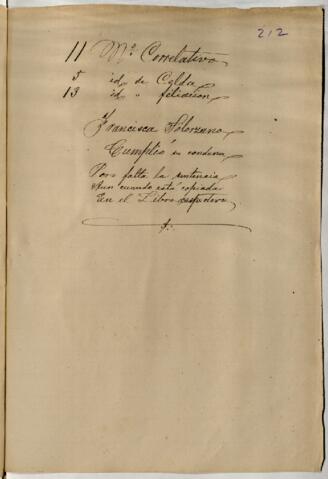 212
11 Nº Correlativo
5 id. de Celda
13 id. " filiacion
Francisca Solorzano
Cumplió su condena
Pero falta la sentencia
Aun cuando está copiada
En el Libro respectivo